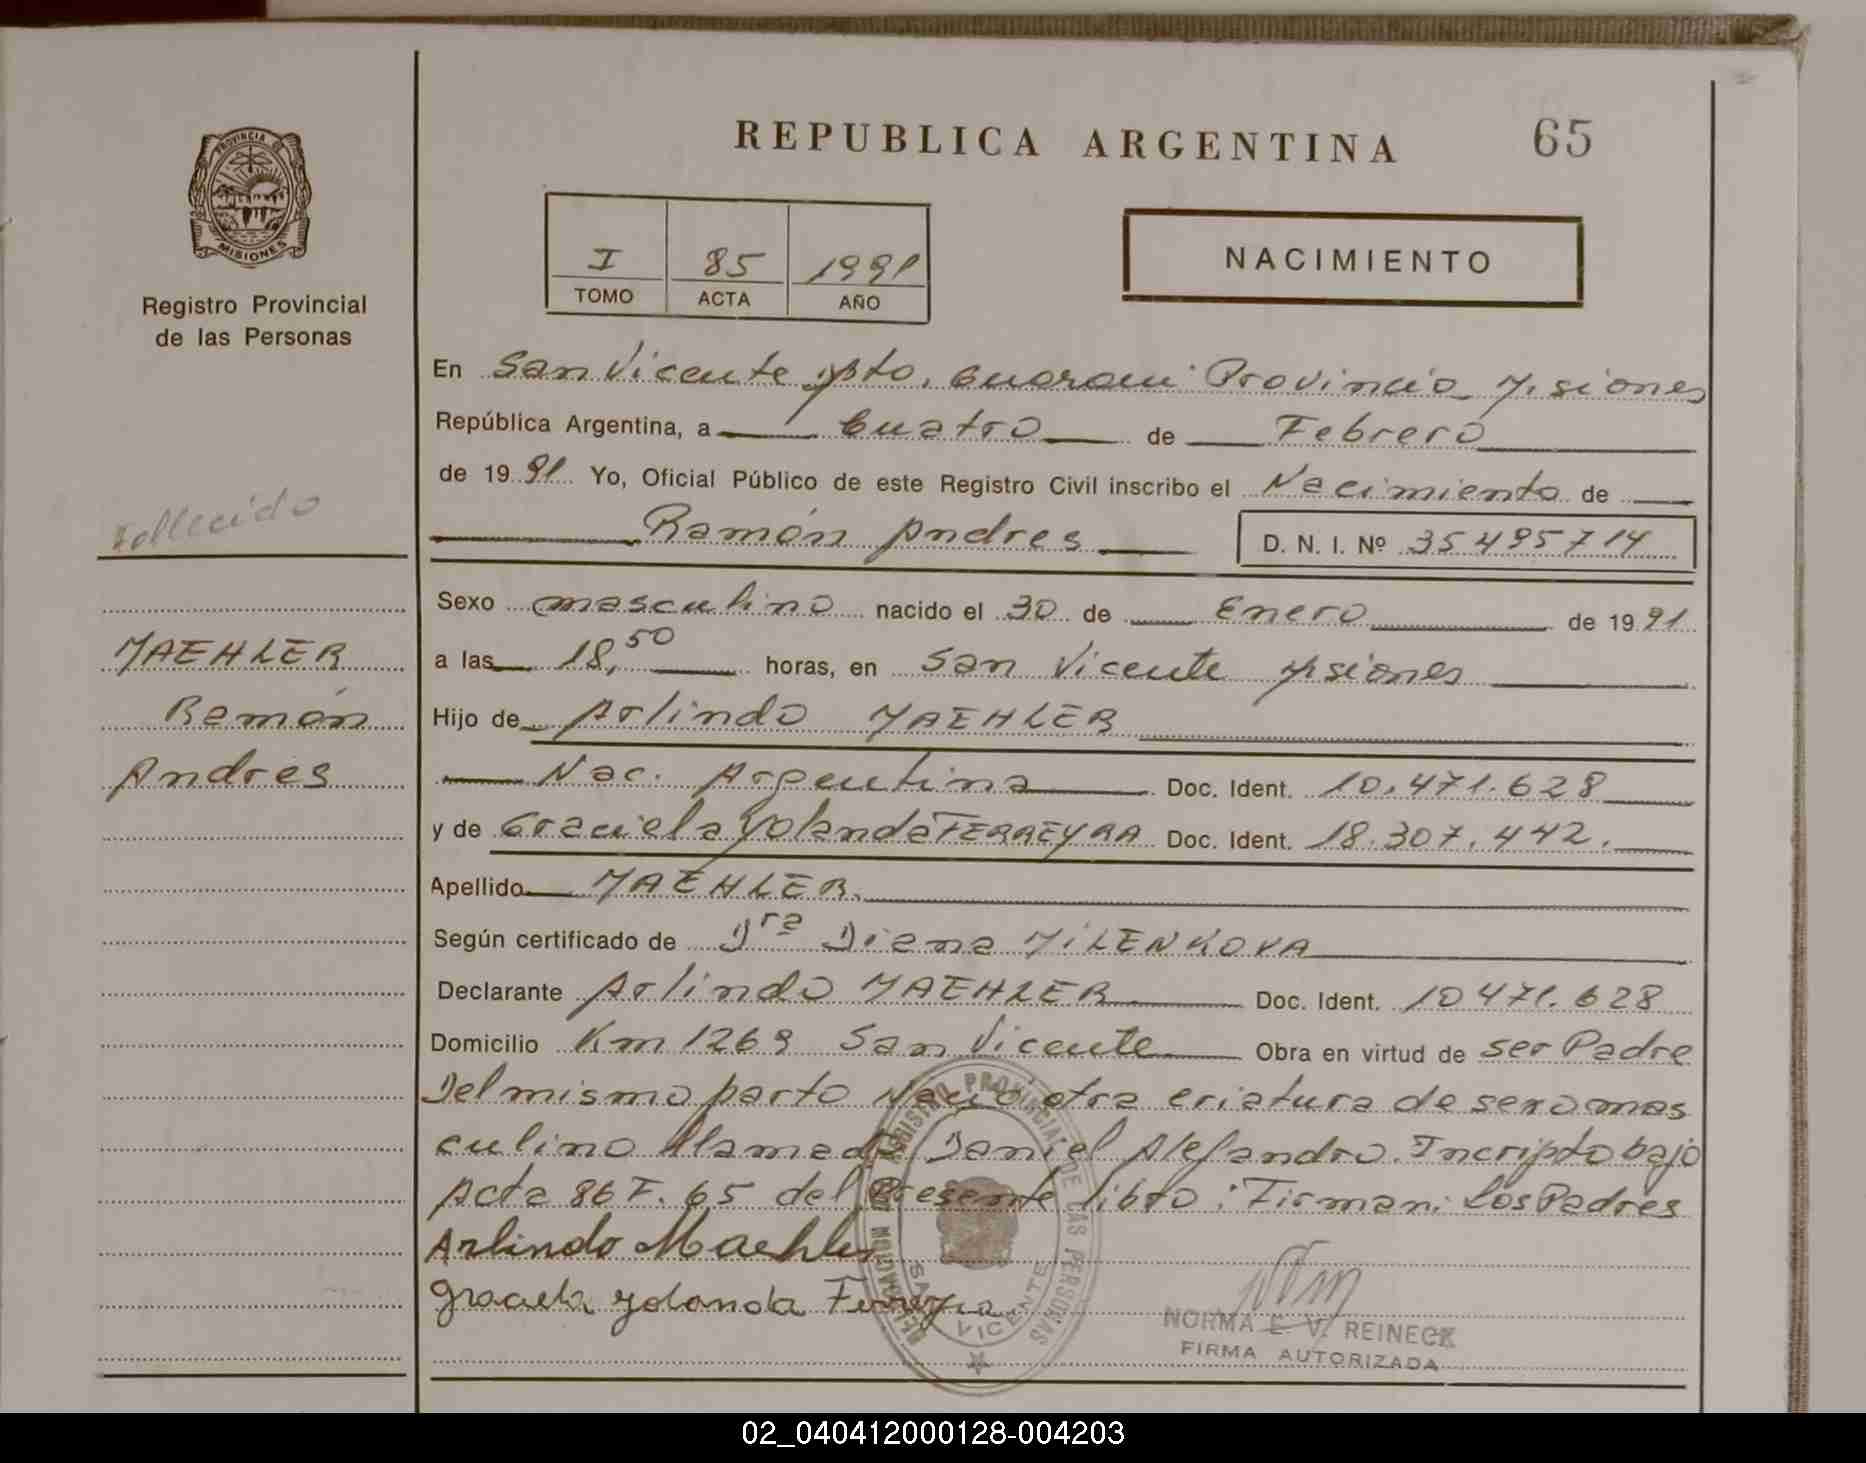 REPUBLICA ARGENTINA
65
PROVINCIA DE
MISIONES
Registro Provincial
de las Personas
I 85 1991
TOMO ACTA AÑO
NACIMIENTO
En San Vicente Dpto. Guarani Provincia Misiones
República Argentina, a Cuatro de Febrero
de 1991 Yo, Oficial Público de este Registro Civil inscribo el Nacimiento de
Ramón Andres D. N. I. Nº 35495714
Fallecido
Sexo masculino nacido el 30 de Enero de 1991
MAEHLER
Ramón
Andres
a las 18,50 horas, en San Vicente Misiones
Hijo de Arlindo MAEHLER
Nac. Argentina Doc. Ident. 10.471.628
y de Graciela Yolanda FERREYRA Doc. Ident. 18.307.442.
Apellido MAEHLER.
Según certificado de Dra Diana MILENKOVA
Declarante Arlindo MAEHLER Doc. Ident. 10471.628
Domicilio Km 1269 San Vicente Obra en virtud de ser Padre
Del mismo parto Nació otra criatura de sexo mas
culino llamado Daniel Alejandro. Incripto bajo
Acta 86 F. 65 del Presente libro: Firman: Los Padres
Arlindo Maehler
Graciela Yolanda Ferreyra
REGISTRO PROVINCIAL DE LAS PERSONAS
SAN VICENTE
NORMA E. V. REINECK
FIRMA AUTORIZADA
02_040412000128-004203